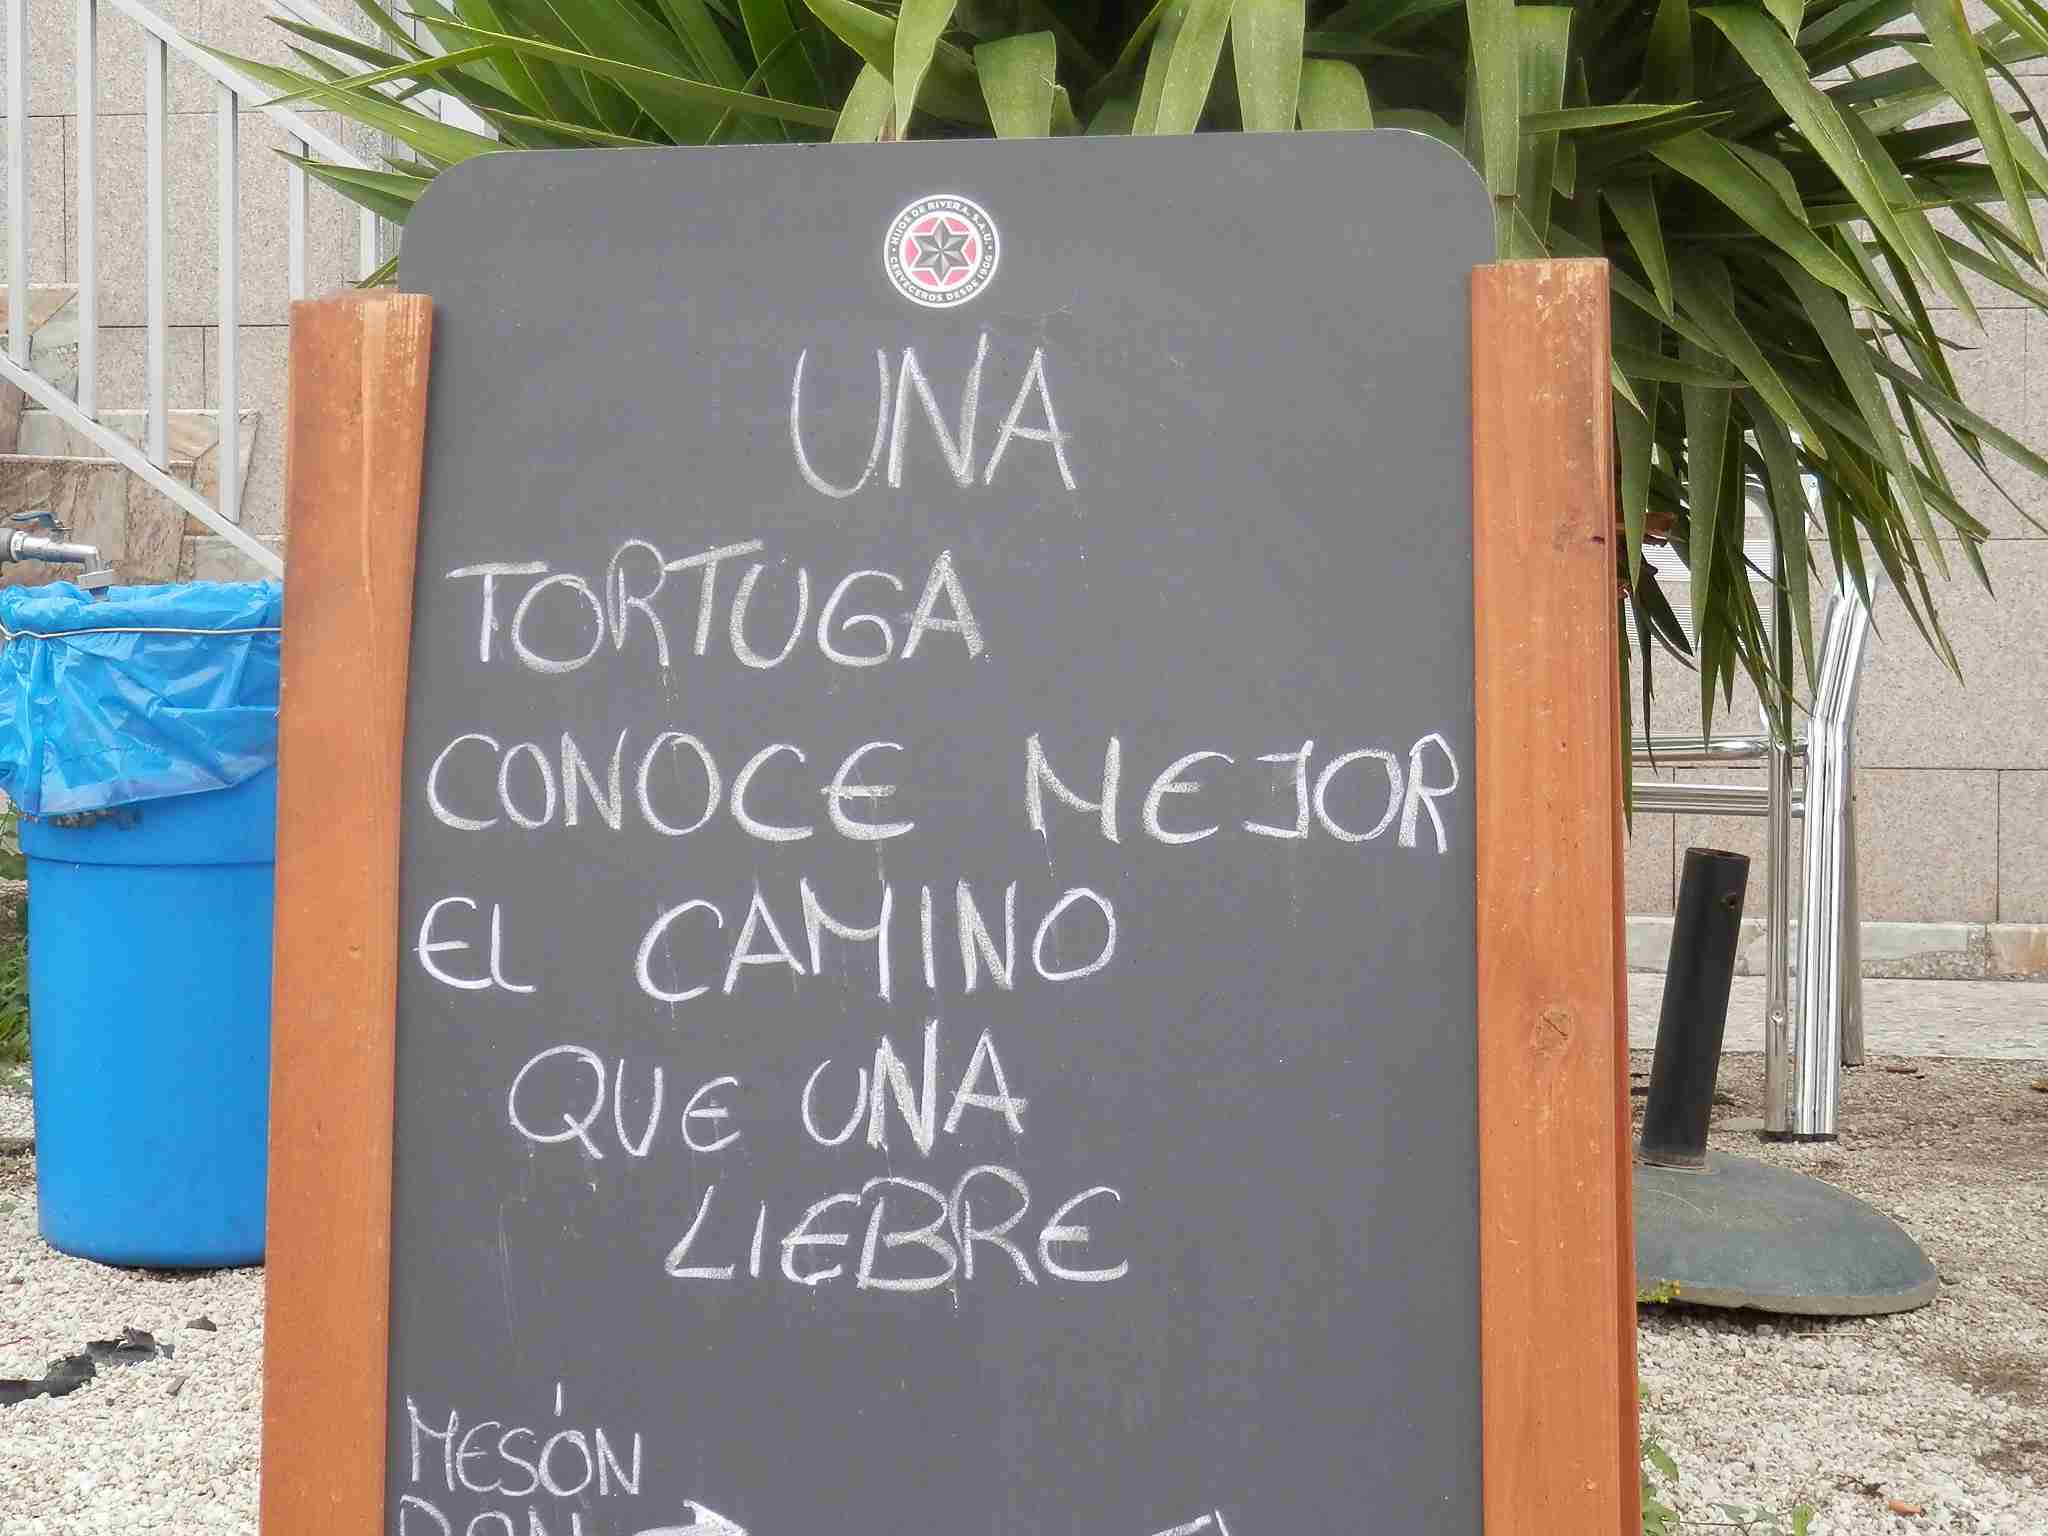 HIJOS DE RIVERA, S.A.U.
CERVECEROS DESDE 1906
UNA
TORTUGA
CONOCE MEJOR
EL CAMINO
QUE UNA
LIEBRE
MESÓN
DON